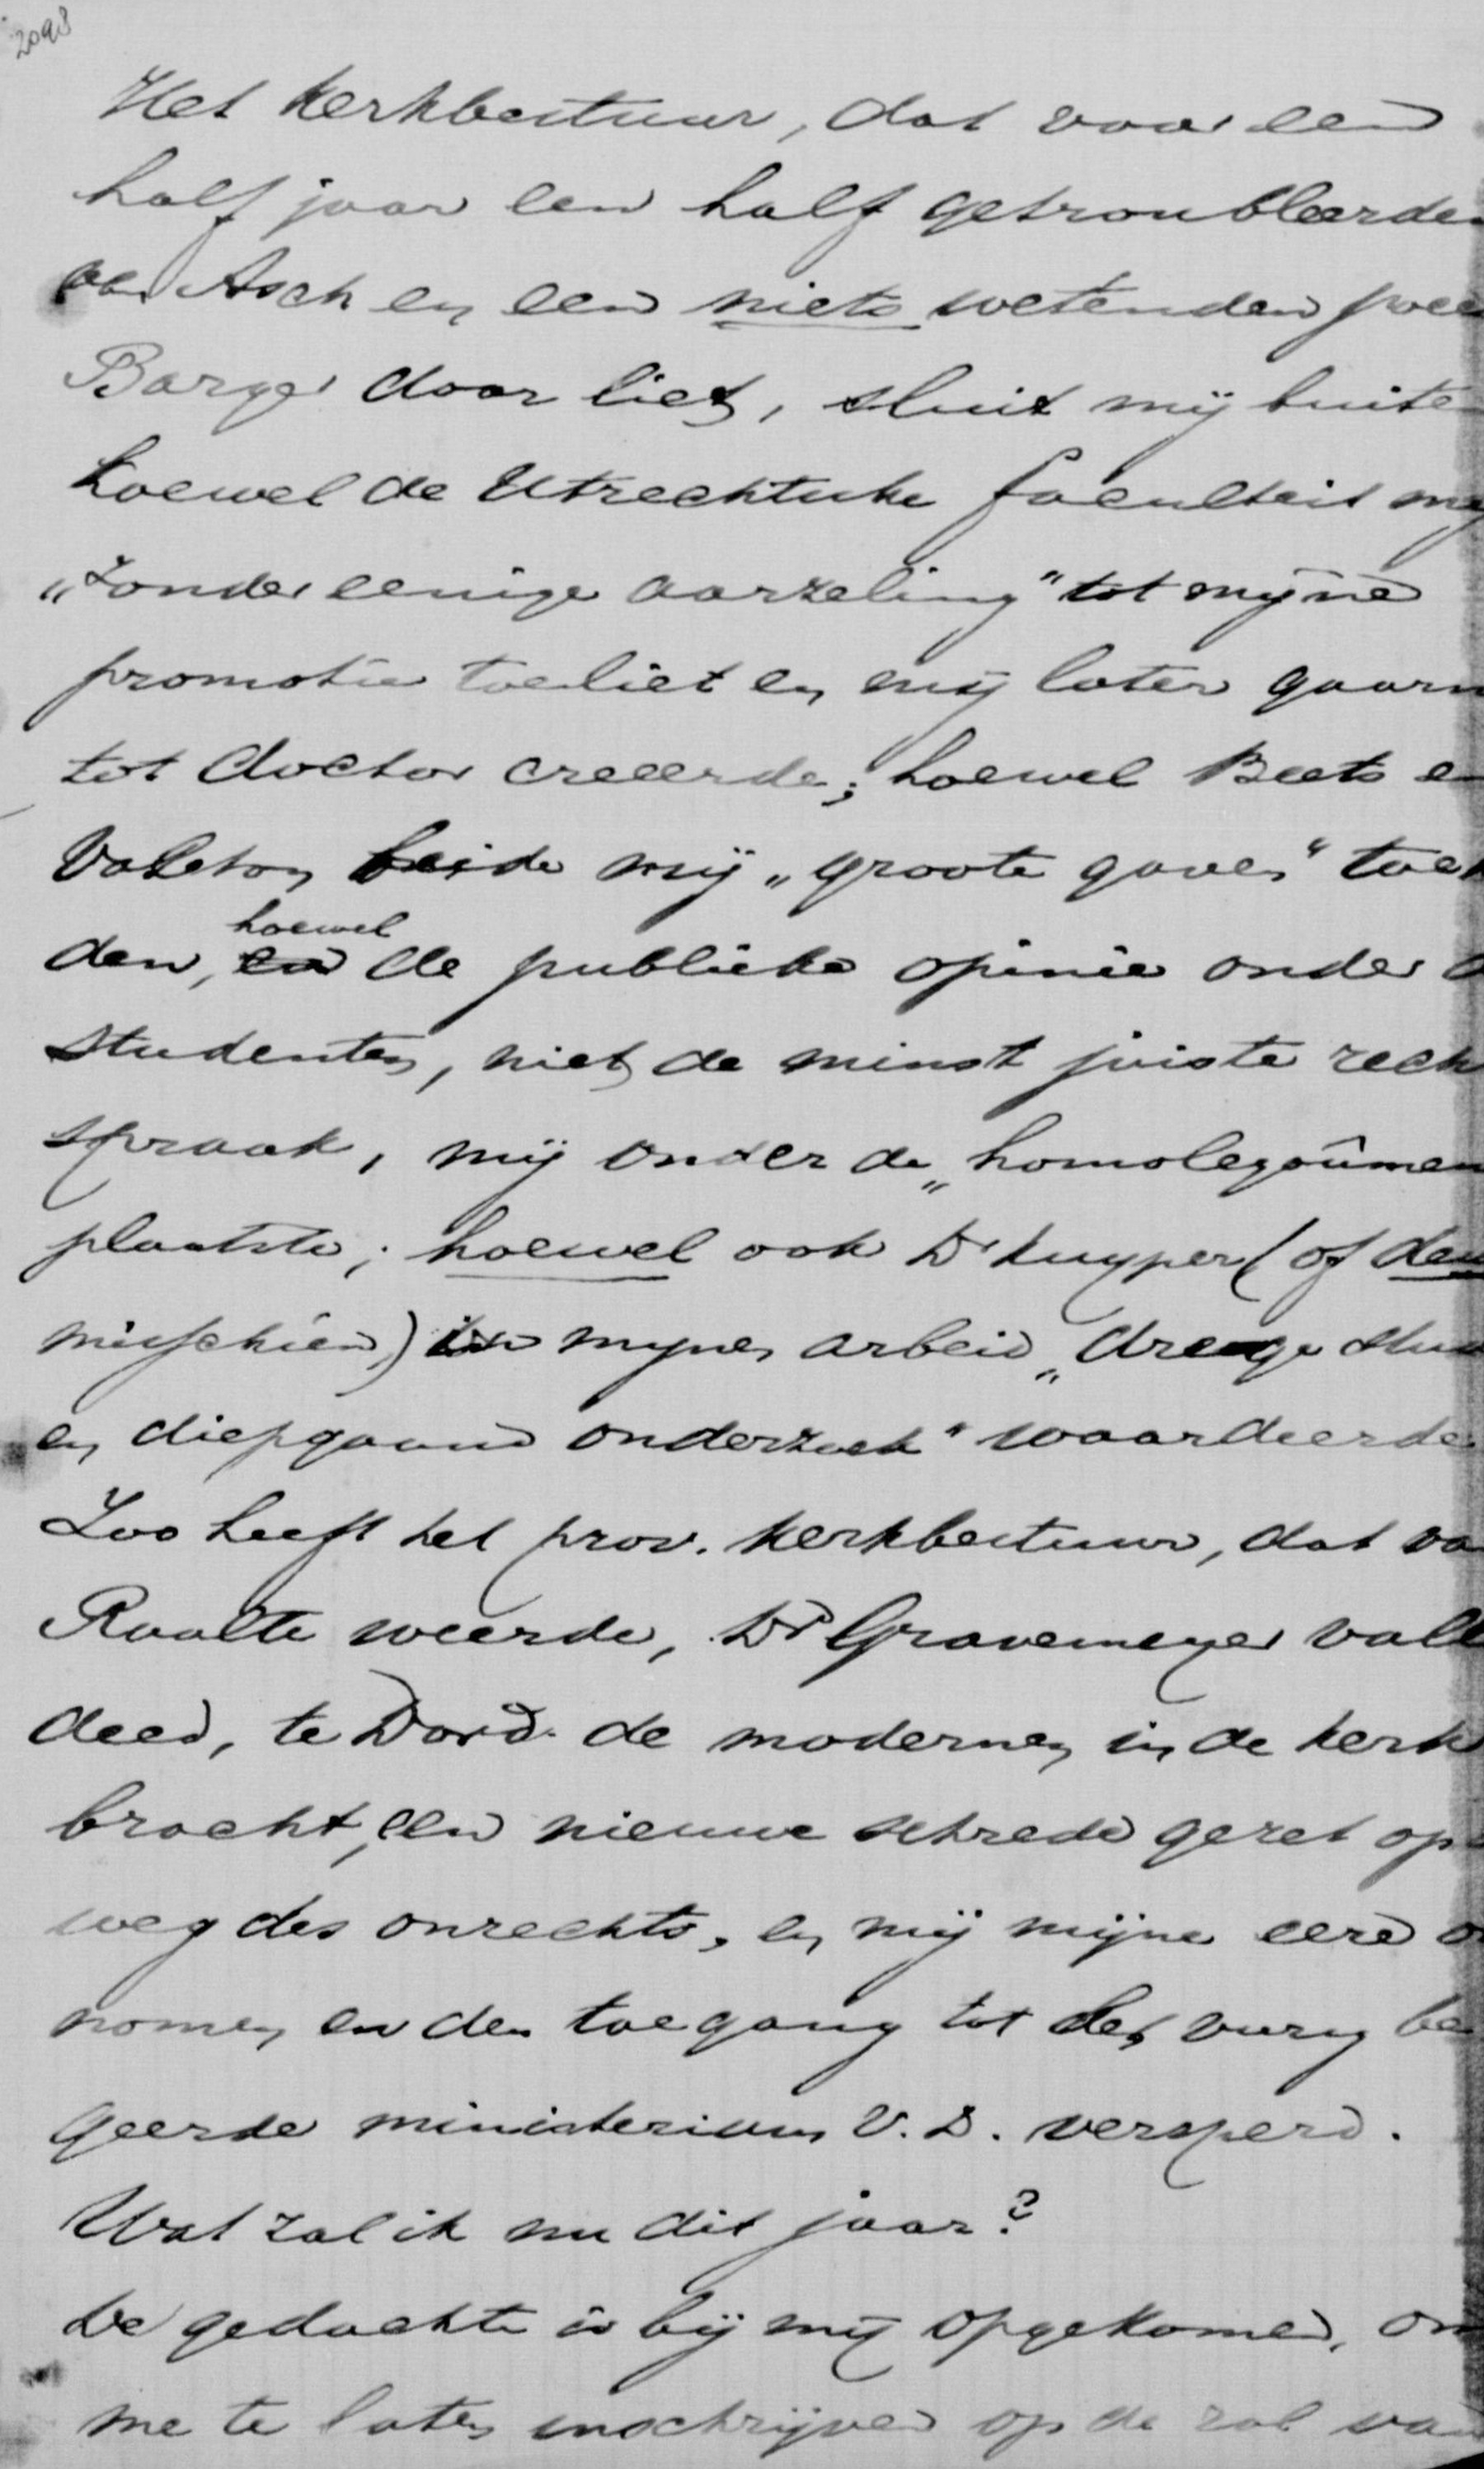 2098
Het Kerkbestuur, dat voor een
half jaar een half getroubleerden
van Asch en een niets wetenden
Barger door liet, sluit mij buite
hoewel de Utrechtsche faculteit mij
„zonder eenige aarzeling" tot mijne
promotie toeliet en mij later gaarn
tot doctor creeerde; hoewel Beets en
Valeton beide mij „groote gaven" toek
den, hoewel de publieke opinie onder d
studenten, niet de minst juiste rech
spraak, mij onder de „homolegoûmen
plaatste; hoewel ook Dr Kuyper (of den
misschien) in mynen arbeid „drooge stu
en diepgaand onderzoek" waardeerde
Zoo heeft het prov. Kerkbestuur, dat va
Raalte weerde, Dr Gravemeyer vall
deed, te Dord. de modernen in de kerk
bracht, een nieuwe schrede gezet op
weg des onrechts, en mij mijne eere o
nomen en den toegang tot het vurig be
geerde ministerium V.D. versperd.
Wat zal ik nu dit jaar?
De gedachte is bij mij opgekomen, om
me te laten inschrijven op de rol van